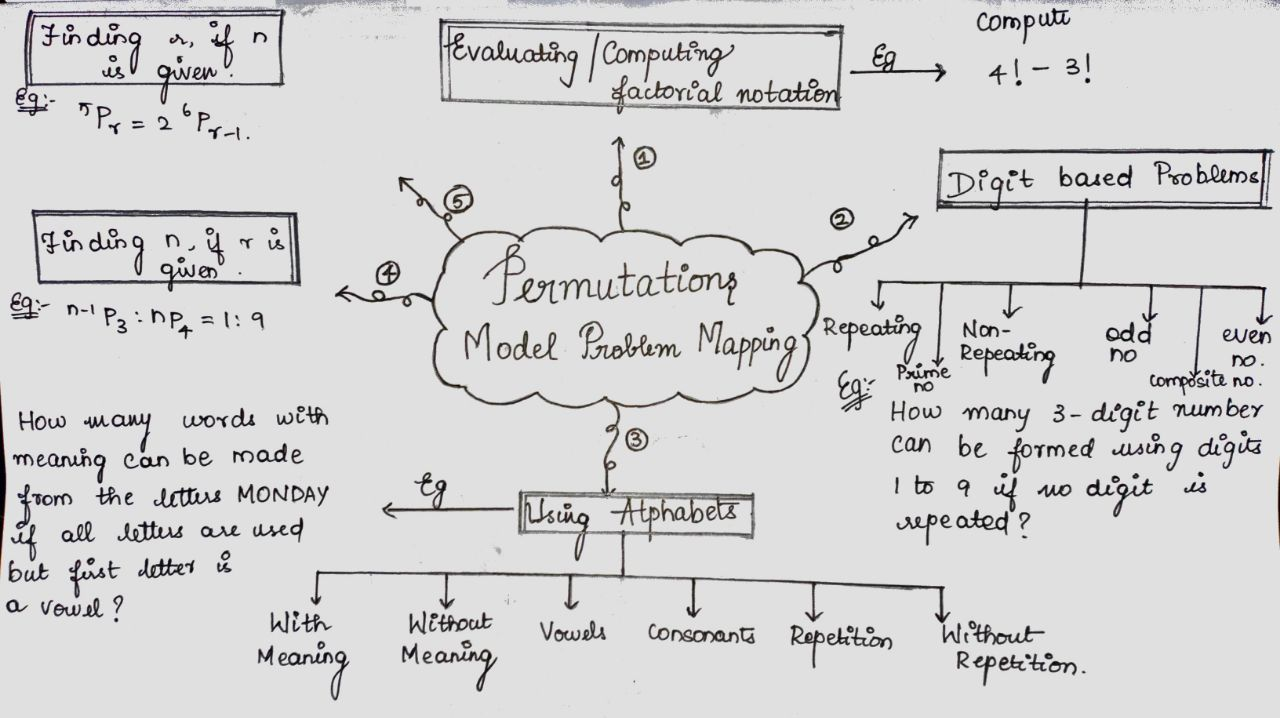 Permutations
Model Problem Mapping
①
Evaluating / Computing
factorial notation
Eg
Compute
4! - 3!
②
Digit based Problems
Repeating
Prime
no
Non-
Repeating
odd
no
composite no.
even
no.
Eg:-
How many 3-digit number
can be formed using digits
1 to 9 if no digit is
repeated?
③
Using Alphabets
With
Meaning
Without
Meaning
Vowels
Consonants
Repetition
Without
Repetition.
Eg
How many words with
meaning can be made
from the letters MONDAY
if all letters are used
but first letter is
a vowel?
④
Finding n, if r is
given.
Eg:- n-1 P3 : nP4 = 1:9
⑤
Finding r, if n
is given.
Eg:- ⁵Pr = 2 ⁶Pr-1.